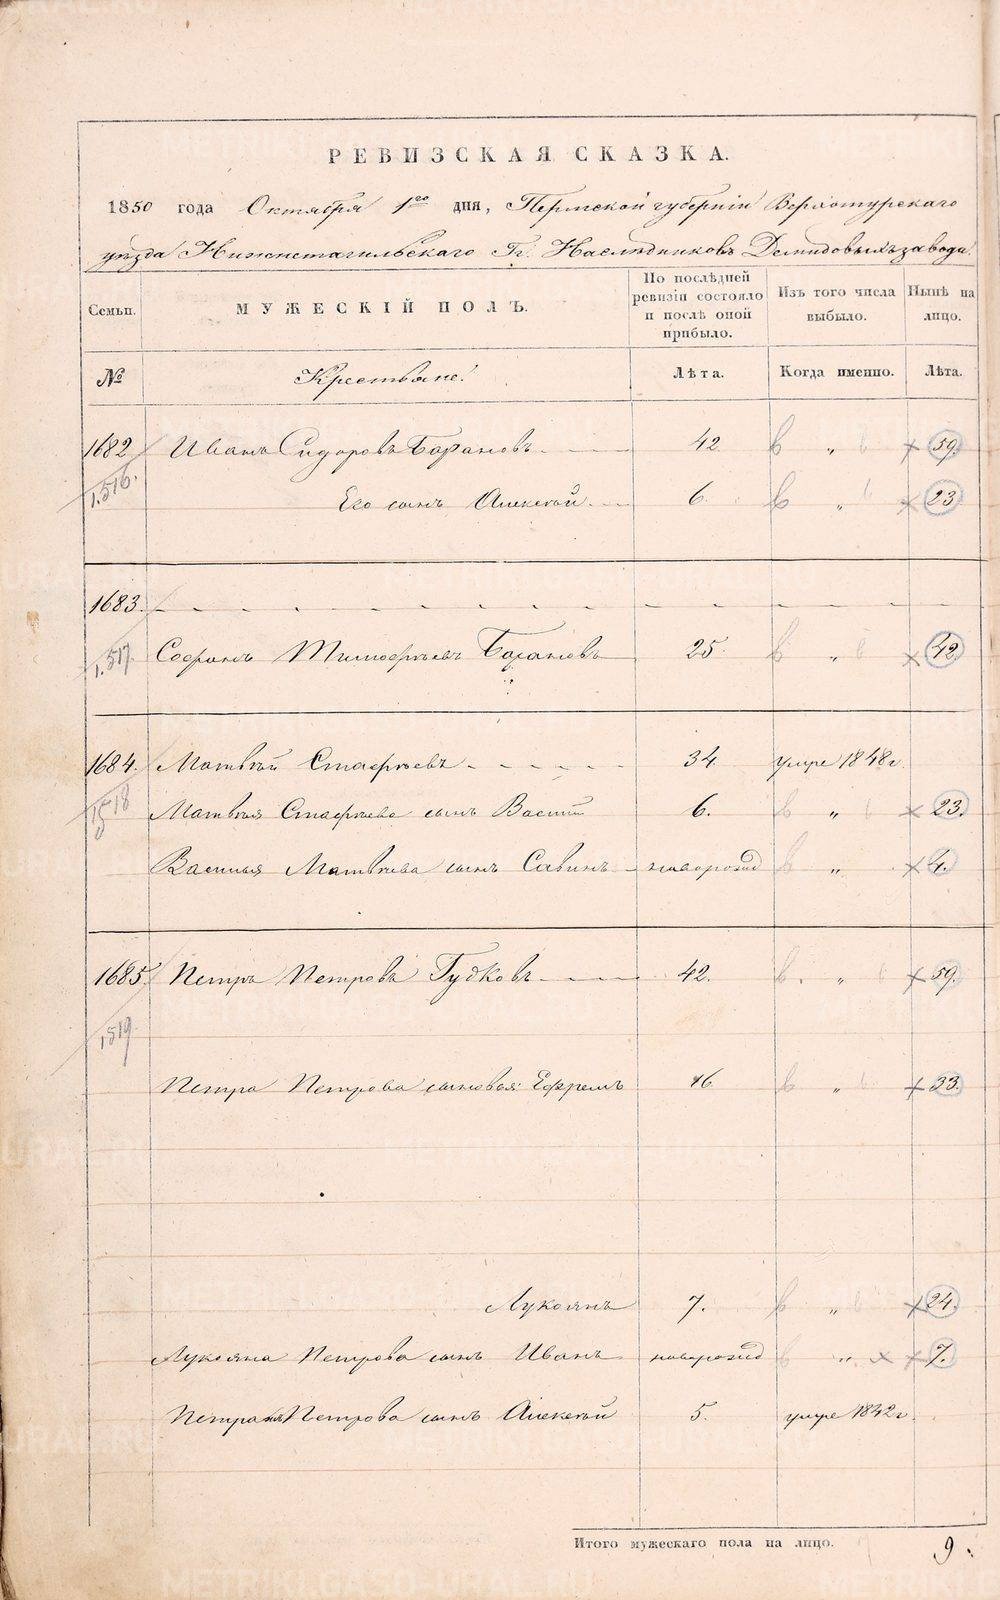 РЕВИЗСКАЯ СКАЗКА.
1850 года Октября 1го дня, Пермской губернiи Верхотурскаго
уѣзда Нижнетагильскаго Гг. Наслѣдниковъ Демидовыхъ завода.
Семьи. МУЖЕСКІЙ ПОЛЪ. По послѣдней ревизіи состояло и послѣ оной прибыло. Изъ того числа выбыло. Нынѣ на лицо.
№ Крестьяне. Лѣта. Когда именно. Лѣта.
1682 Иванъ Сидоровъ Барановъ 42 " 59.
1.516. Его сынъ Алексѣй 6. " 23
1683.
1.517. Софронъ Тимофѣевъ Барановъ 25. " 42.
1684. Матвѣй Стафѣевъ 34 умре 1848 г.
1518 Матвѣя Стафѣева сынъ Василiй 6. " 23.
Василья Матвѣева сынъ Савинъ новорожд " 4.
1685. Петръ Петровъ Гудковъ 42. " 59.
1519
Петра Петрова сыновья: Ефремъ 16 " 33.
Лукоянъ 7. " 24.
Лукояна Петрова сынъ Иванъ новорожд " 7.
Петра Петрова сынъ Алексѣй 5. умре 1842 г.
Итого мужескаго пола на лицо. 9.
METRIKI.GASO-URAL.RU